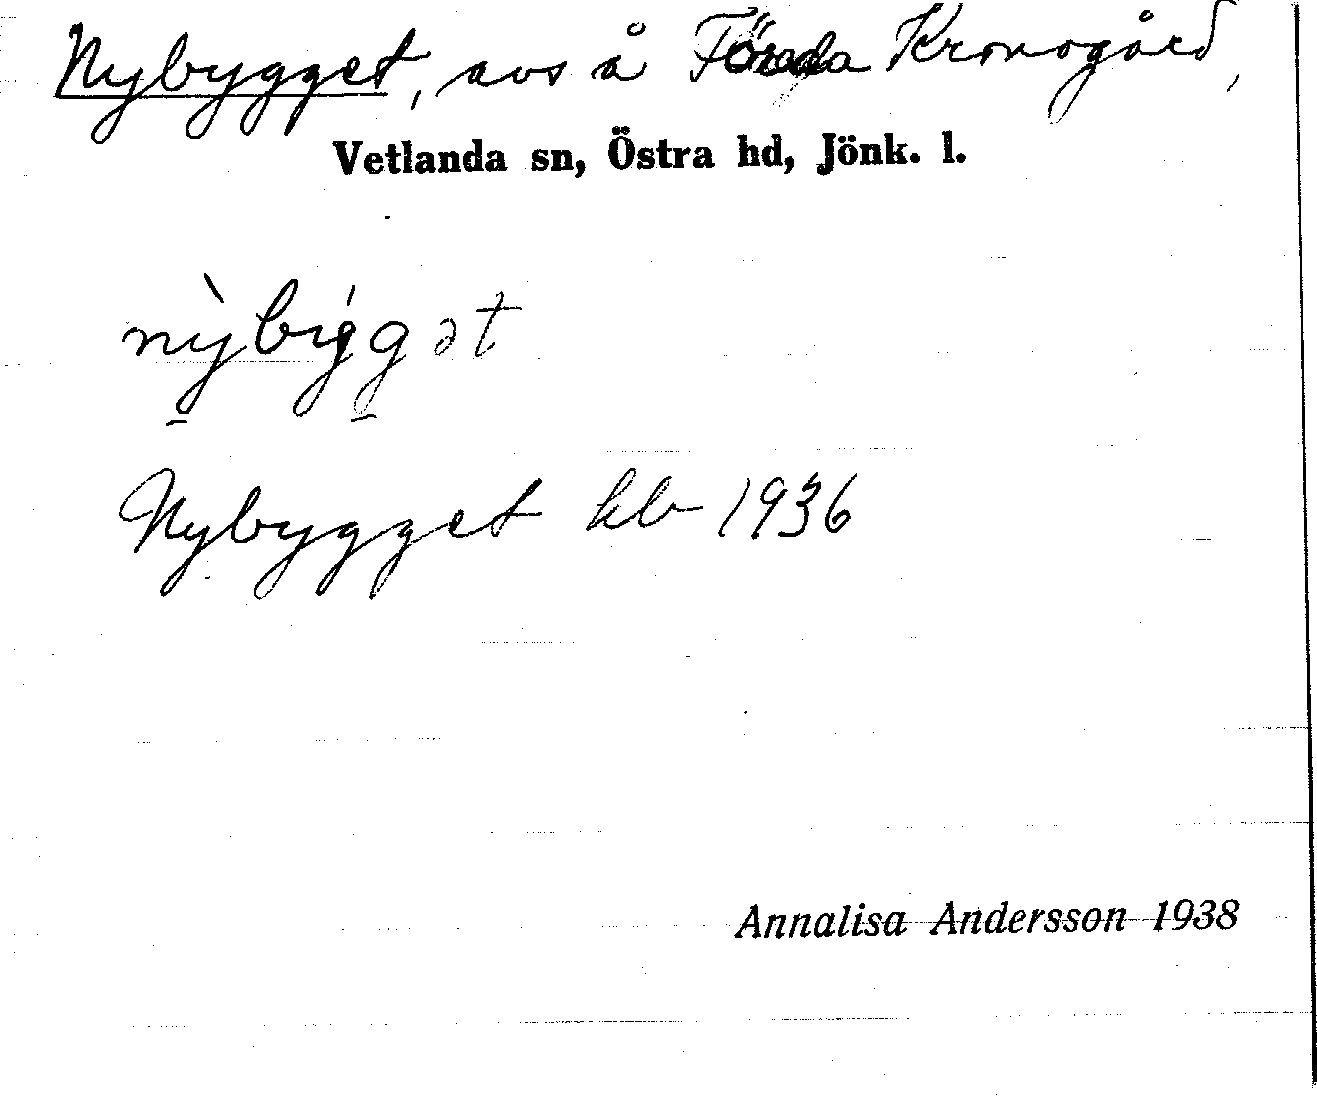 Nybygget, avs å Föreda Kronogård,
Vetlanda sn, Östra hd, Jönk. l.
nỳbig̍gət
Nybygget kb 1936
Annalisa Andersson 1938